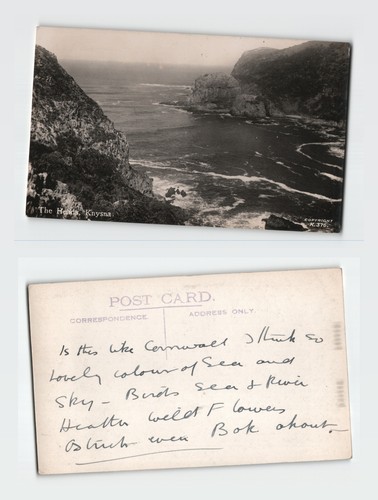 The Heads, Knysna
COPYRIGHT
K. 376.
POST CARD.
CORRESPONDENCE.
ADDRESS ONLY.
Is this like Cornwall I think so
Lovely colour of Sea and
Sky - Birds Sea & River
Heather Weld Flowers
Ostrich even Bok about